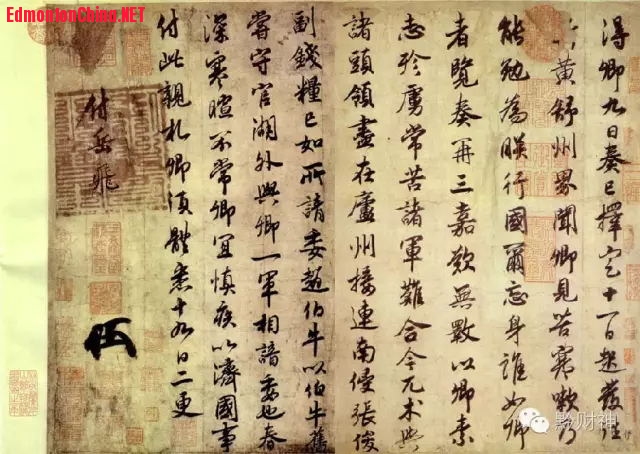 EdmontonChina.NET
得卿九日奏已擇定十一日起發往
黃舒州界聞卿見苦寒嗽乃
能勉為朕行國爾忘身誰如卿
者覽奏再三嘉歎無斁以卿素
志殄虜常苦諸軍難合今兀朮與
諸頭領盡在廬州接連南侵張俊
副錢糧已如所請委趙伯牛以伯牛舊
嘗守官湖外與卿一軍相諳委也春
深寒暄不常卿宜慎疾以濟國事
付此親札卿須體悉十九日二更
付岳飛
黔财神